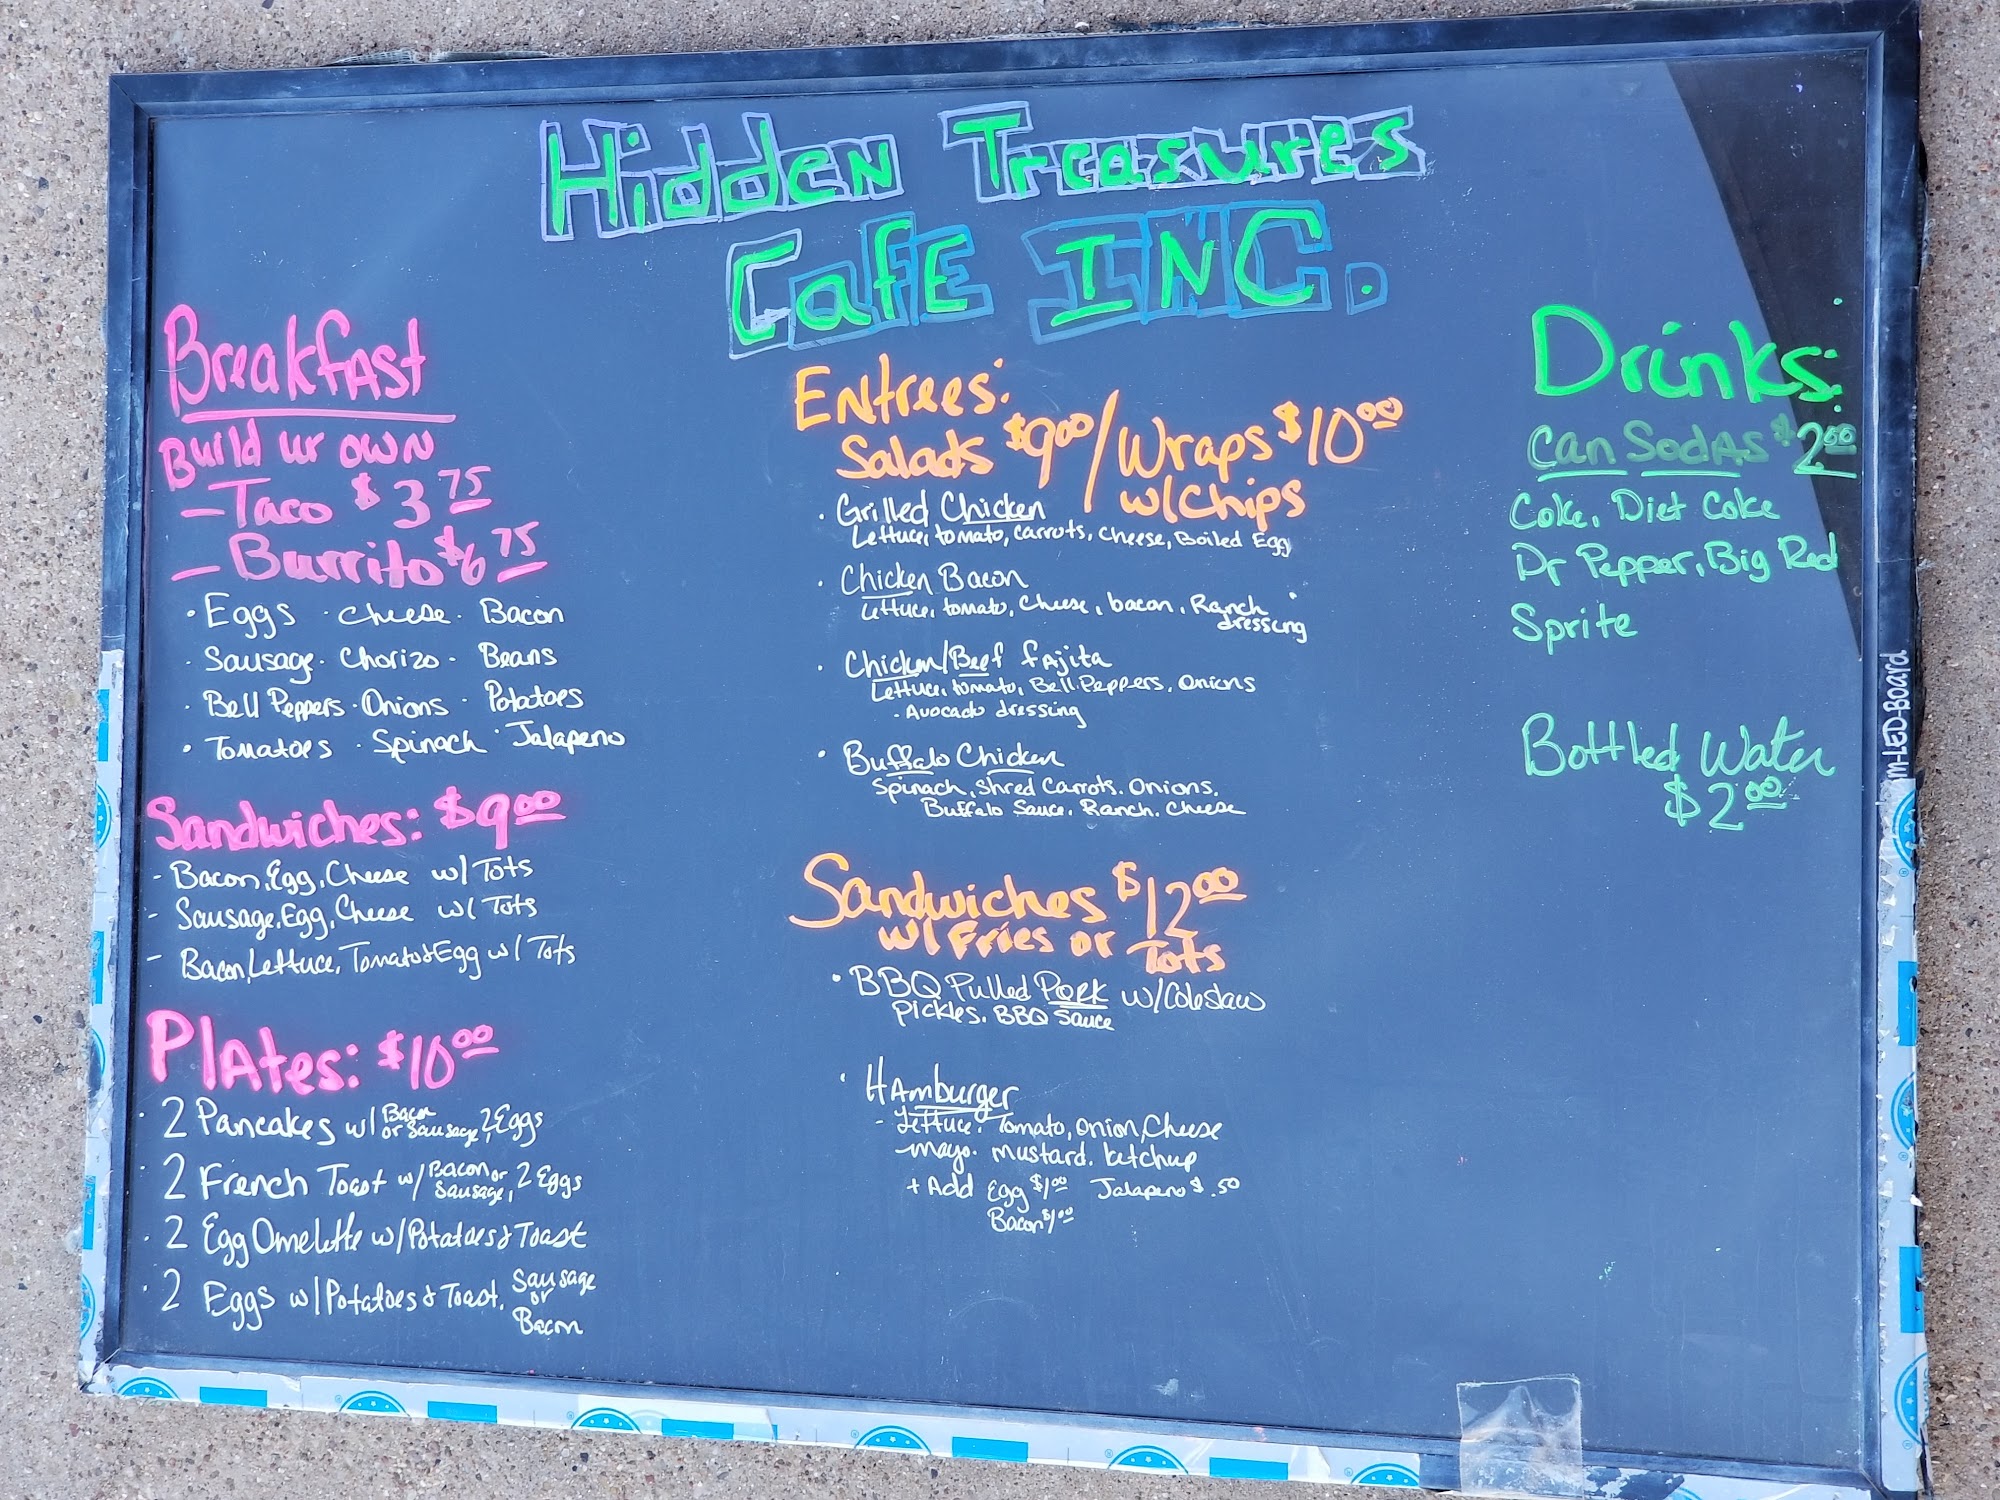 Hidden Treasures
Cafe INC.
Breakfast
Build ur own
- Taco $3.75
- Burrito $6.75
· Eggs · Cheese · Bacon
· Sausage · Chorizo · Beans
· Bell Peppers · Onions · Potatoes
· Tomatoes · Spinach · Jalapeno
Sandwiches: $9.00
- Bacon, Egg, Cheese w/ Tots
- Sausage, Egg, Cheese w/ Tots
- Bacon, Lettuce, Tomato & Egg w/ Tots
Plates: $10.00
· 2 Pancakes w/ Bacon or Sausage, 2 Eggs
· 2 French Toast w/ Bacon or Sausage, 2 Eggs
· 2 Egg Omelette w/ Potatoes & Toast
· 2 Eggs w/ Potatoes & Toast, Sausage or Bacon
Entrees:
Salads $9.00 / Wraps $10.00
w/ Chips
· Grilled Chicken
Lettuce, tomato, carrots, cheese, Boiled Egg
· Chicken Bacon
Lettuce, tomato, cheese, bacon, Ranch
dressing
· Chicken/Beef Fajita
Lettuce, tomato, Bell Peppers, onions
· Avocado dressing
· Buffalo Chicken
Spinach, Shred Carrots, Onions,
Buffalo Sauce, Ranch, Cheese
Sandwiches $12.00
w/ Fries or Tots
· BBQ Pulled Pork w/ Coleslaw
Pickles, BBQ Sauce
· Hamburger
- Lettuce, Tomato, onion, Cheese
mayo, mustard, ketchup
+ Add Egg $1.00 Jalapeno $.50
Bacon $1.00
Drinks:
Can Sodas $2.00
Coke, Diet Coke
Dr Pepper, Big Red
Sprite
Bottled Water
$2.00
m-LED-Board